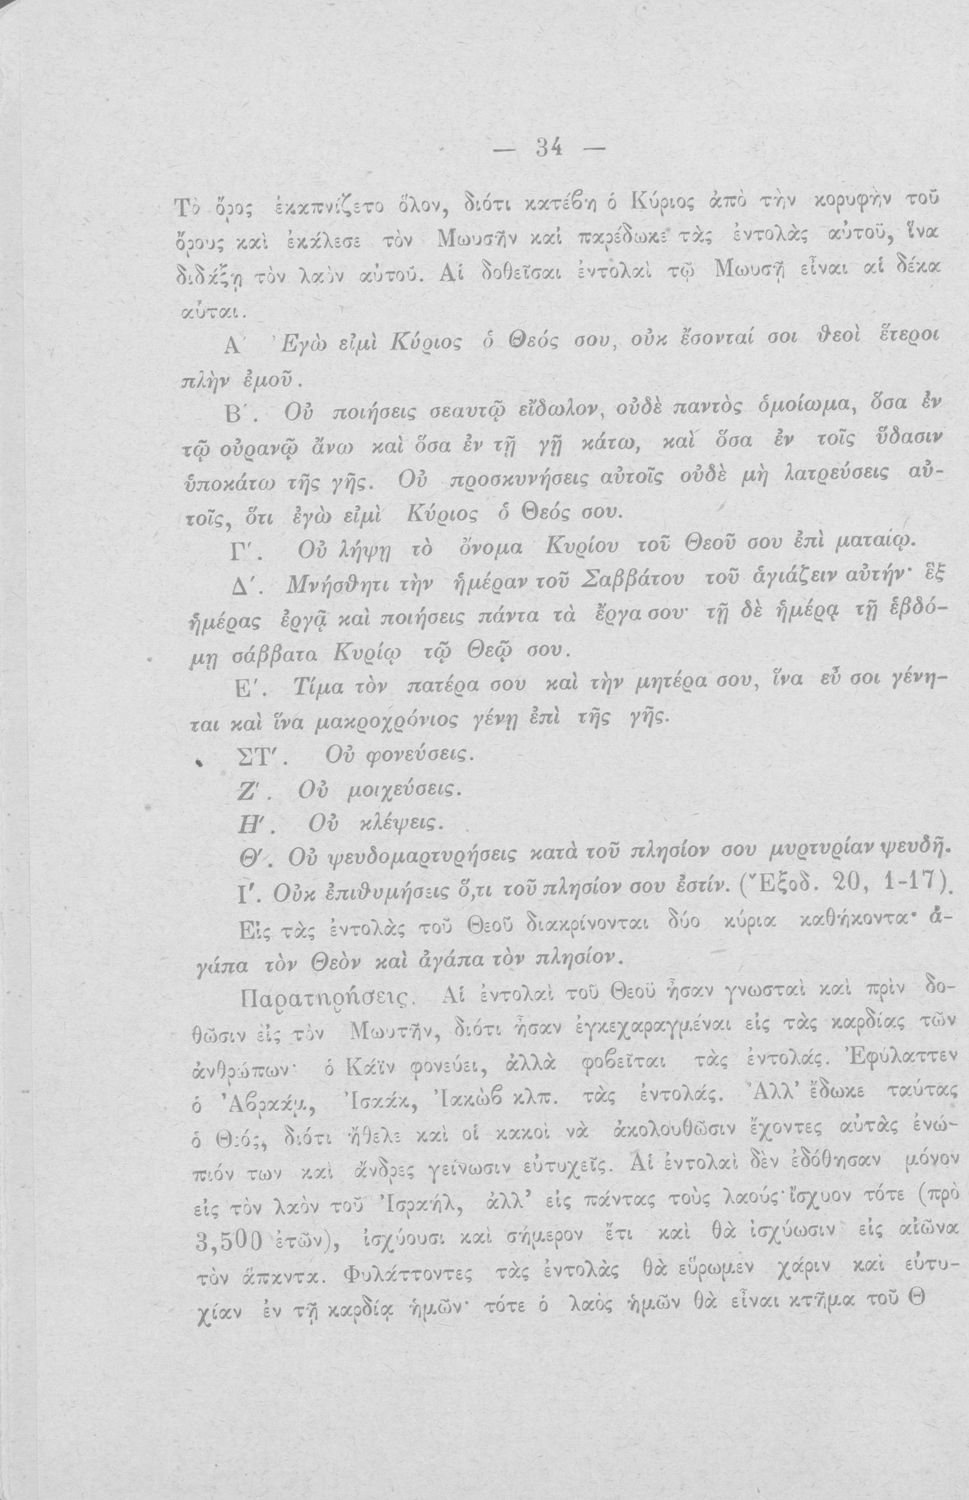 — 34 —
Τὸ ὄρος ἐκαπνίζετο ὅλον, διότι κατέβη ὁ Κύριος ἀπὸ τὴν κορυφὴν τοῦ
ὄρους καὶ ἐκάλεσε τὸν Μωυσῆν καὶ παρέδωκε τὰς ἐντολὰς αὐτοῦ, ἵνα
διδάξῃ τὸν λαὸν αὐτοῦ. Αἱ δοθεῖσαι ἐντολαὶ τῷ Μωυσῇ εἶναι αἱ δέκα
αὗται.
Α΄ Ἐγὼ εἰμὶ Κύριος ὁ Θεός σου, οὐκ ἔσονταί σοι θεοὶ ἕτεροι
πλὴν ἐμοῦ.
Β΄. Οὐ ποιήσεις σεαυτῷ εἴδωλον, οὐδὲ παντὸς ὁμοίωμα, ὅσα ἐν
τῷ οὐρανῷ ἄνω καὶ ὅσα ἐν τῇ γῇ κάτω, καὶ ὅσα ἐν τοῖς ὕδασιν
ὑποκάτω τῆς γῆς. Οὐ προσκυνήσεις αὐτοῖς οὐδὲ μὴ λατρεύσεις αὐ-
τοῖς, ὅτι ἐγὼ εἰμὶ Κύριος ὁ Θεός σου.
Γ΄. Οὐ λήψῃ τὸ ὄνομα Κυρίου τοῦ Θεοῦ σου ἐπὶ ματαίῳ.
Δ΄. Μνήσθητι τὴν ἡμέραν τοῦ Σαββάτου τοῦ ἁγιάζειν αὐτήν· ἓξ
ἡμέρας ἐργᾷ καὶ ποιήσεις πάντα τὰ ἔργα σου· τῇ δὲ ἡμέρᾳ τῇ ἑβδό-
μῃ σάββατα Κυρίῳ τῷ Θεῷ σου.
Ε΄. Τίμα τὸν πατέρα σου καὶ τὴν μητέρα σου, ἵνα εὖ σοι γένη-
ται καὶ ἵνα μακροχρόνιος γένῃ ἐπὶ τῆς γῆς.
ΣΤ΄. Οὐ φονεύσεις.
Ζ΄. Οὐ μοιχεύσεις.
Η΄. Οὐ κλέψεις.
Θ΄. Οὐ ψευδομαρτυρήσεις κατὰ τοῦ πλησίον σου μυρτυρίαν ψευδῆ.
Ι΄. Οὐκ ἐπιθυμήσεις ὅ,τι τοῦ πλησίον σου ἐστίν. (Ἔξοδ. 20, 1-17).
Εἰς τὰς ἐντολὰς τοῦ Θεοῦ διακρίνονται δύο κύρια καθήκοντα· ἀ-
γάπα τὸν Θεὸν καὶ ἀγάπα τὸν πλησίον.
Παρατηρήσεις. Αἱ ἐντολαὶ τοῦ Θεοῦ ἦσαν γνωσταὶ καὶ πρὶν δο-
θῶσιν εἰς τὸν Μωυτῆν, διότι ἦσαν ἐγκεχαραγμέναι εἰς τὰς καρδίας τῶν
ἀνθρώπων· ὁ Κάϊν φονεύει, ἀλλὰ φοβεῖται τὰς ἐντολάς. Ἐφύλαττεν
ὁ Ἀβραάμ, Ἰσαάκ, Ἰακὼβ κλπ. τὰς ἐντολάς. Ἀλλ’ ἔδωκε ταύτας
ὁ Θεός, διότι ἤθελε καὶ οἱ κακοὶ νὰ ἀκολουθῶσιν ἔχοντες αὐτὰς ἐνώ-
πιόν των καὶ ἄνδρες γείνωσιν εὐτυχεῖς. Αἱ ἐντολαὶ δὲν ἐδόθησαν μόνον
εἰς τὸν λαὸν τοῦ Ἰσραήλ, ἀλλ’ εἰς πάντας τοὺς λαούς· ἴσχυον τότε (πρὸ
3,500 ἐτῶν), ἰσχύουσι καὶ σήμερον ἔτι καὶ θὰ ἰσχύωσιν εἰς αἰῶνα
τὸν ἅπαντα. Φυλάττοντες τὰς ἐντολὰς θὰ εὕρωμεν χάριν καὶ εὐτυ-
χίαν ἐν τῇ καρδίᾳ ἡμῶν· τότε ὁ λαὸς ἡμῶν θὰ εἶναι κτῆμα τοῦ Θ